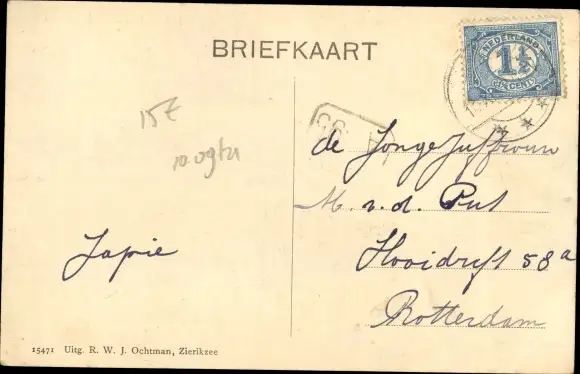 BRIEFKAART
NEDERLAND
1½
CENT
15E
de Jongejuffrouw
M. v. d. Put
Hooidrift 58a
Rotterdam
Japie
15471 Uitg. R. W. J. Ochtman, Zierikzee